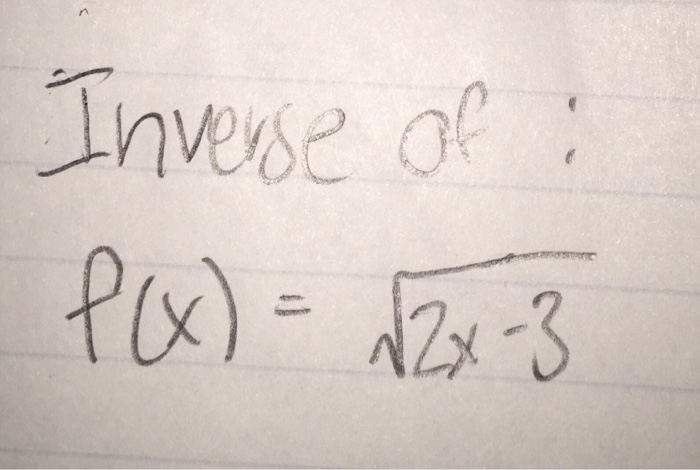 Inverse of :
f(x) = √2x-3